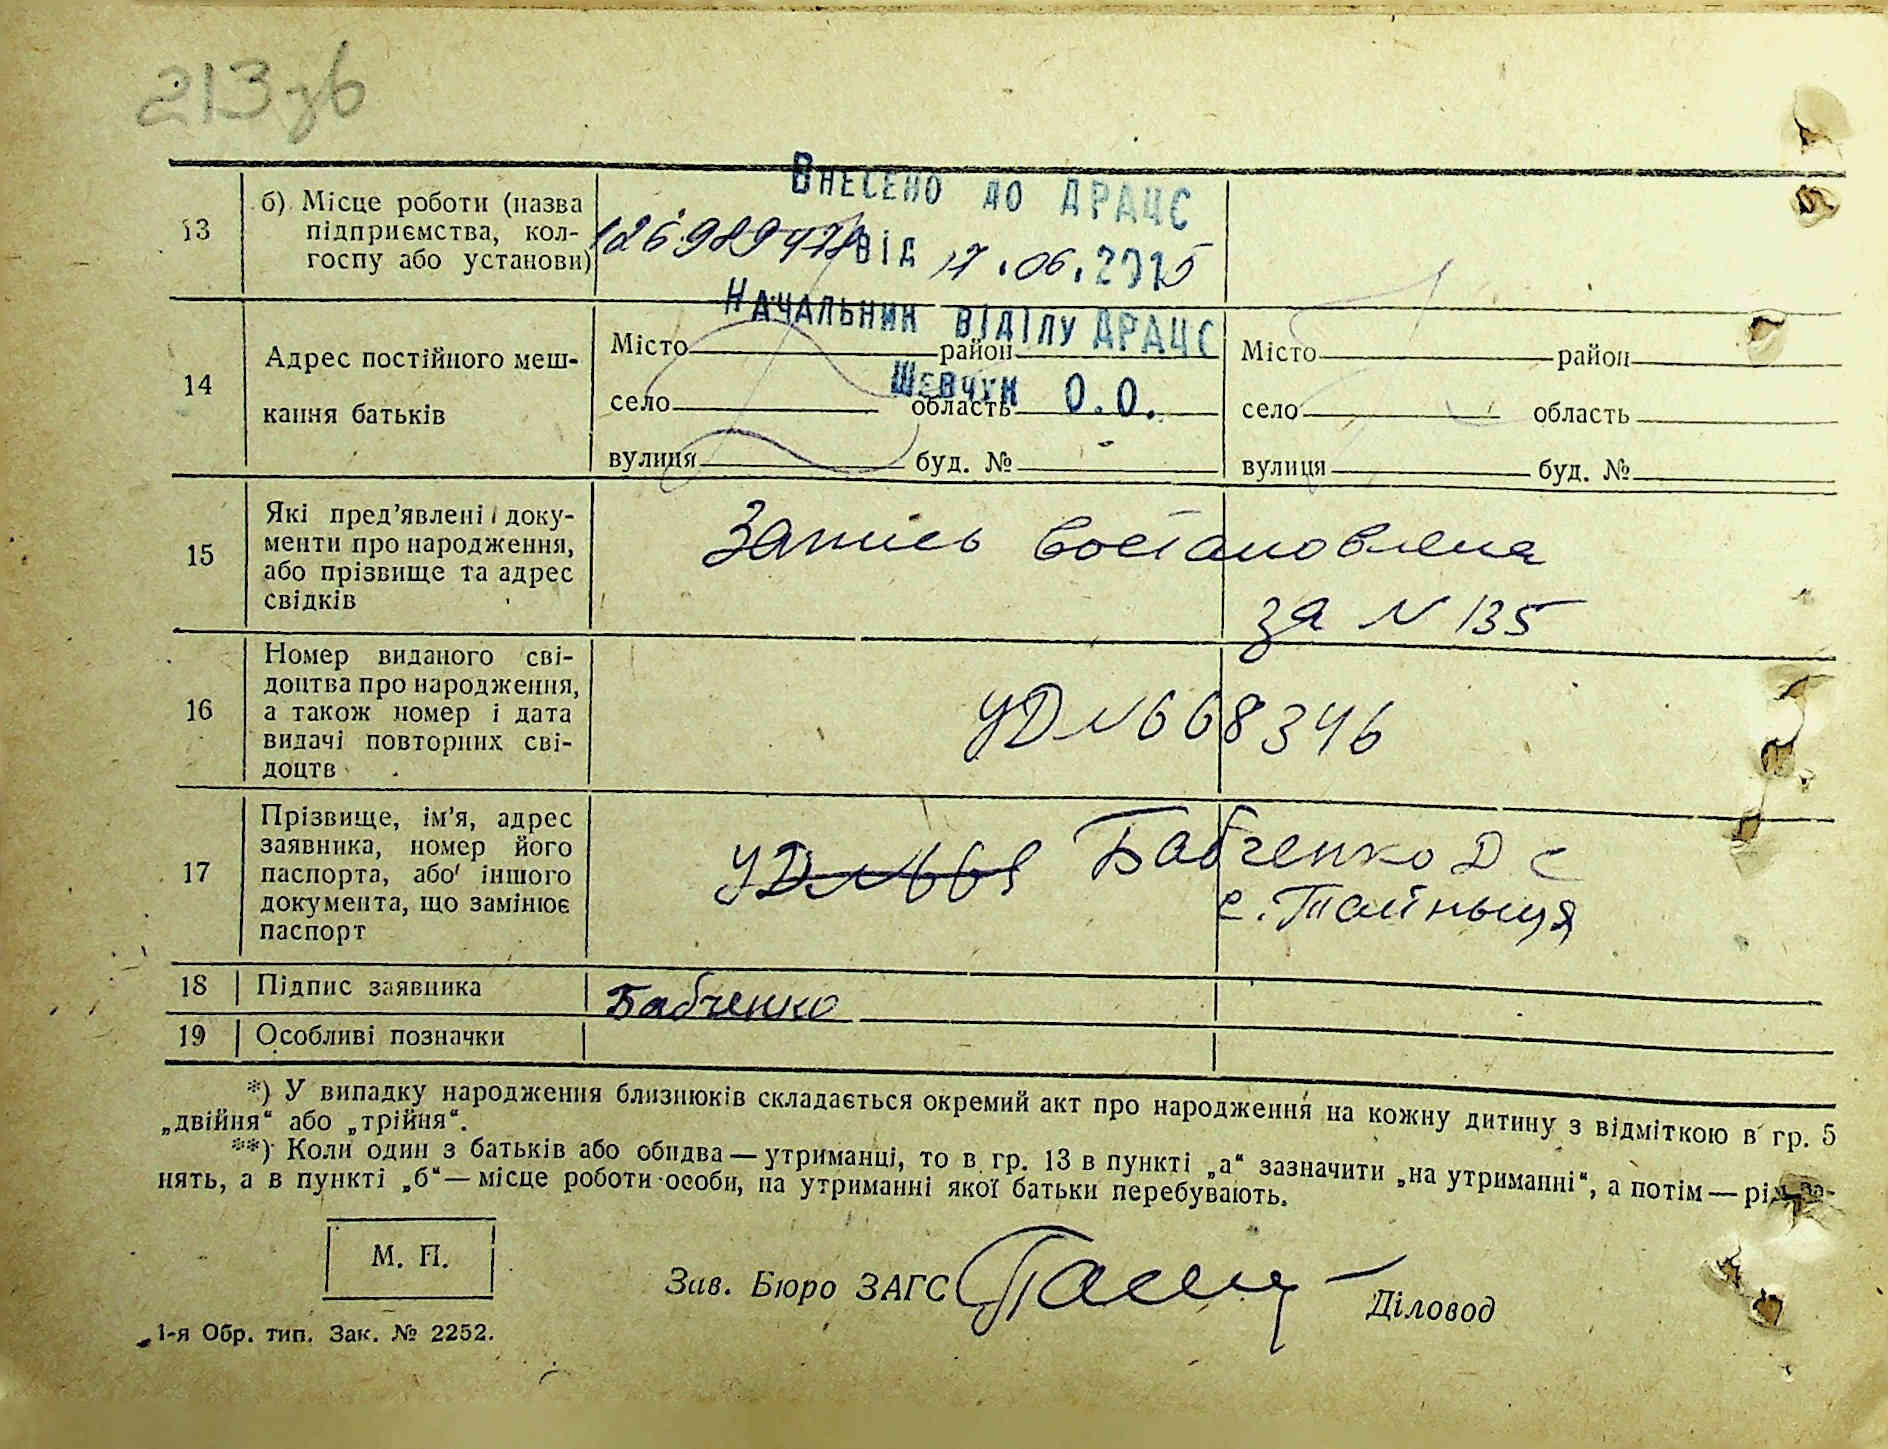 213 зв
Внесено до ДРАЦС
13
б) Місце роботи (назва
підприємства, кол-
госпу або установи)
від 17.06.2015
Начальник відділу ДРАЦС
Шевчук О.О.
14
Адрес постійного меш-
кання батьків
Місто район
село область
вулиця буд. №
Місто район
село область
вулиця буд. №
15
Які пред'явлені доку-
менти про народження,
або прізвище та адрес
свідків
Запись востановлена
за N 135
16
Номер виданого сві-
доцтва про народження,
а також номер і дата
видачі повторних сві-
доцтв
УД N 668346
17
Прізвище, ім'я, адрес
заявника, номер його
паспорта, або іншого
документа, що замінює
паспорт
УД N 668
Бабченко Д С
с. Тайныця
18 Підпис заявника Бабченко
19 Особливі позначки
*) У випадку народження близнюків складається окремий акт про народження на кожну дитину з відміткою в гр. 5
„двійня“ або „трійня“.
**) Коли один з батьків або обидва — утриманці, то в гр. 13 в пункті „а“ зазначити „на утриманні“, а потім — рід за-
нять, а в пункті „б“ — місце роботи особи, на утриманні якої батьки перебувають.
М. П.
Зав. Бюро ЗАГС
Діловод
1-я Обр. тип. Зак. № 2252.